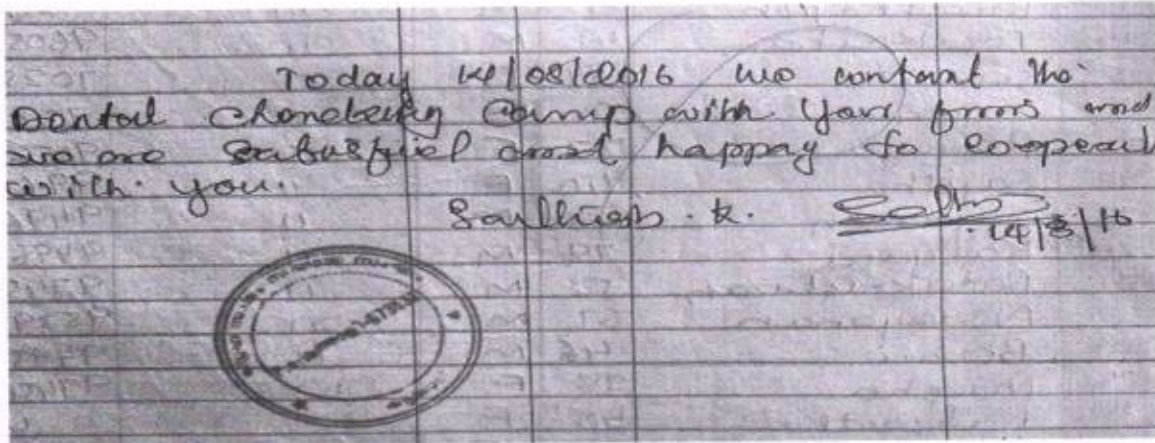 Today 14/08/2016 we contant the
Dental Checkup Camp with your firms and
we are satisfied and happay to cooperate
with you.
14/8/16